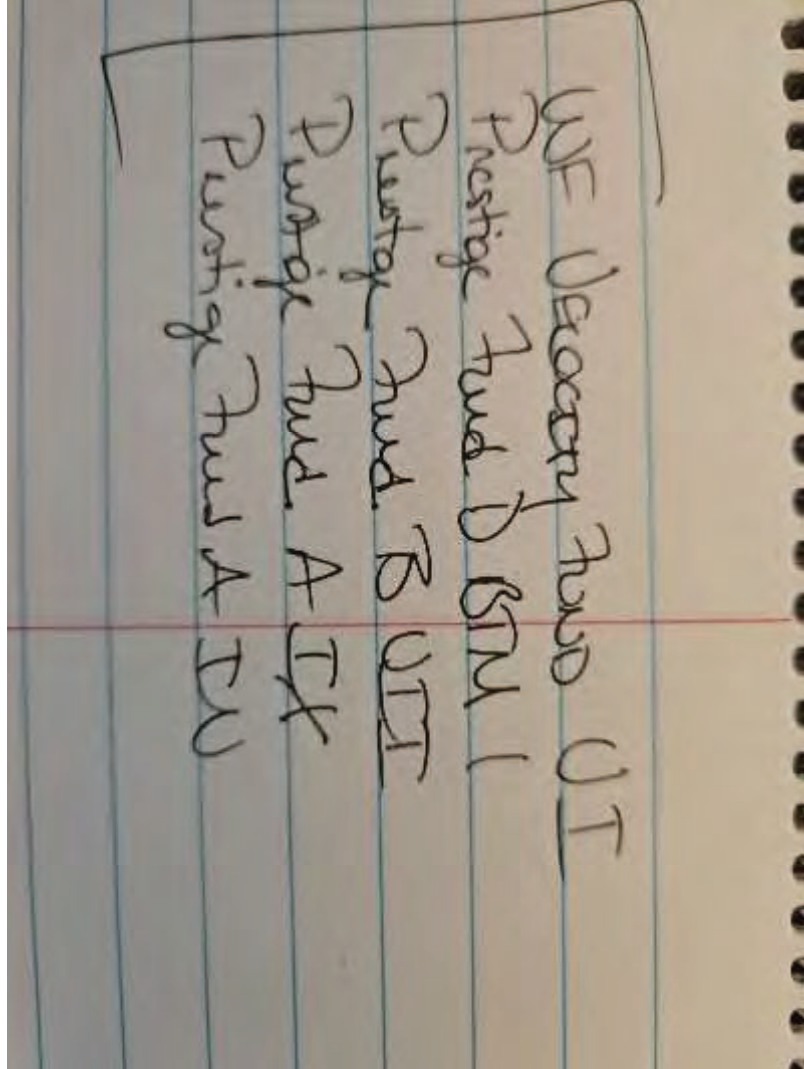 WF VELOCITY FUND VI
Prestige Fund D BTM 1
Prestige Fund B VII
Prestige Fund A IX
Prestige Fund A IV